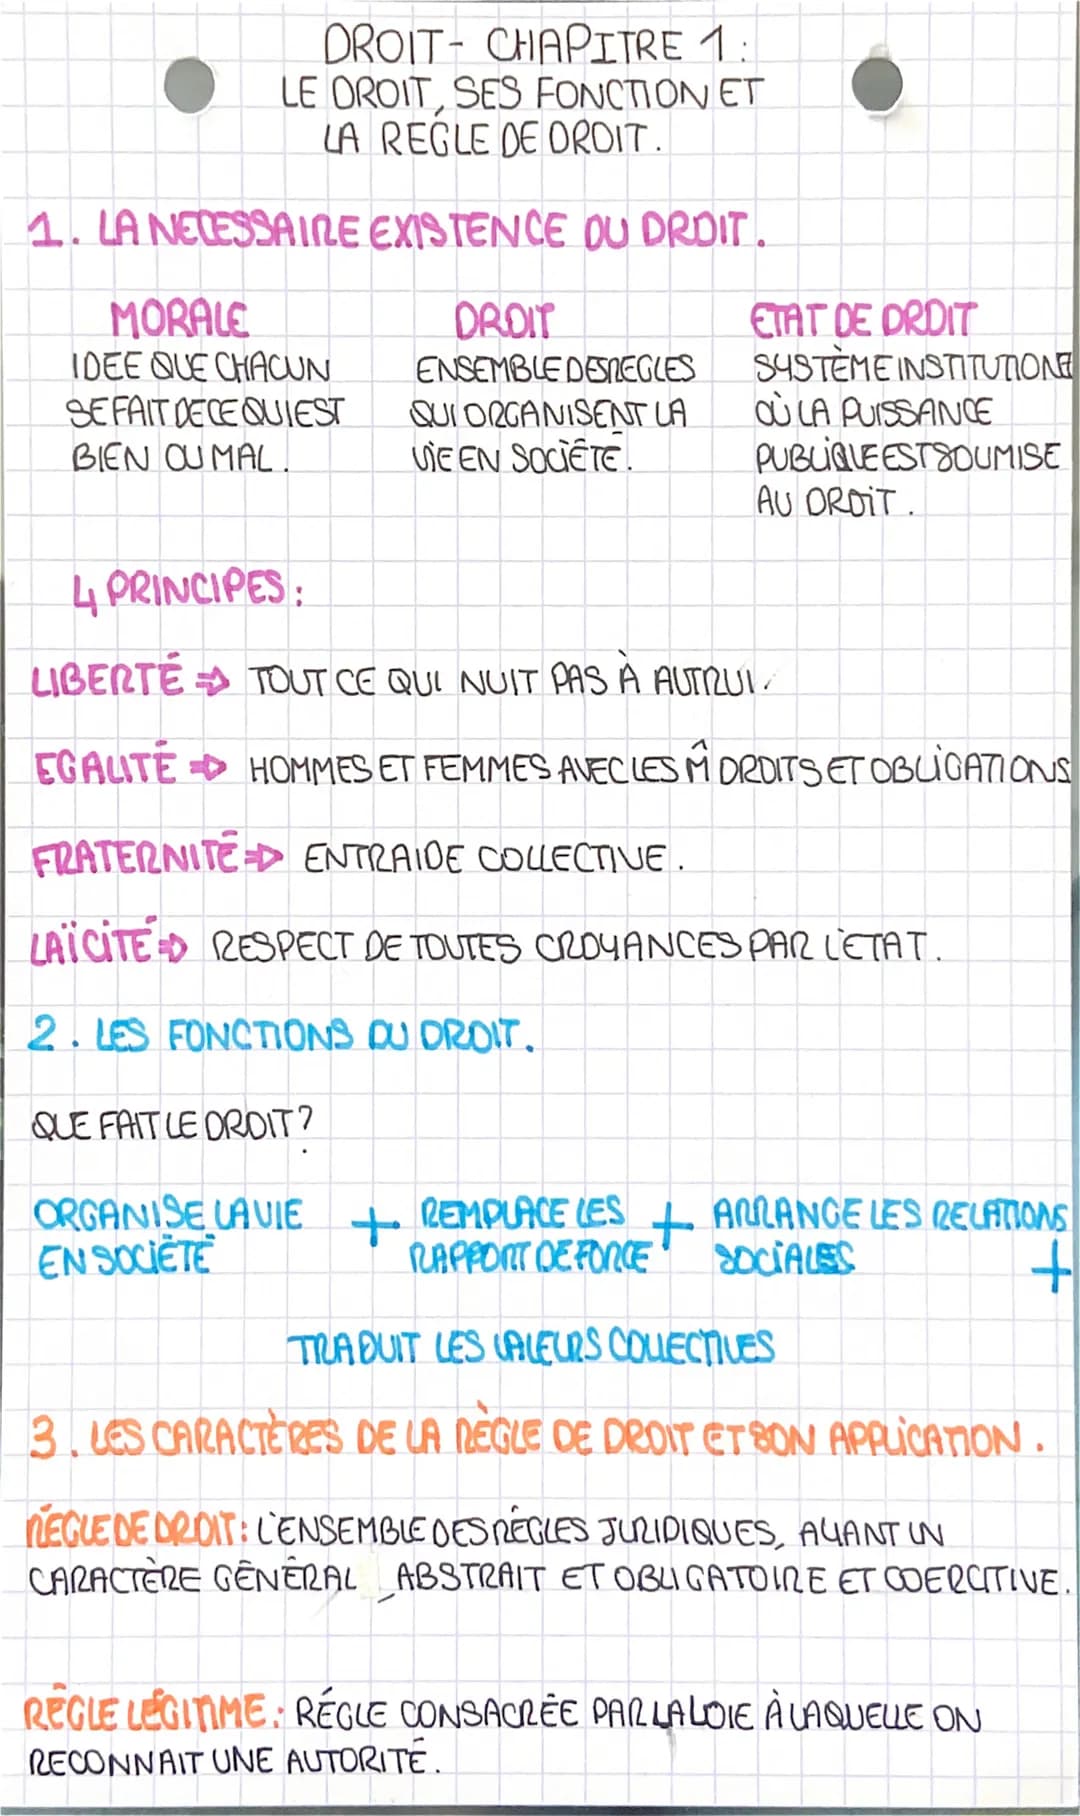 DROIT - CHAPITRE 1 :
LE DROIT, SES FONCTION ET
LA REGLE DE DROIT.
1. LA NECESSAIRE EXISTENCE DU DROIT.
MORALE
IDEE QUE CHACUN
SE FAIT DE CE QUI EST
BIEN OU MAL.
DROIT
ENSEMBLE DES REGLES
QUI ORGANISENT LA
VIE EN SOCIÉTÉ.
ETAT DE DROIT
SYSTÈME INSTITUTIONEL
OÙ LA PUISSANCE
PUBLIQUE EST SOUMISE
AU DROIT.
4 PRINCIPES :
LIBERTÉ ⇒ TOUT CE QUI NUIT PAS À AUTRUI.
EGALITÉ ⇒ HOMMES ET FEMMES AVEC LES M̂ DROITS ET OBLIGATIONS
FRATERNITÉ ⇒ ENTRAIDE COLLECTIVE.
LAÏCITÉ ⇒ RESPECT DE TOUTES CROYANCES PAR L'ETAT.
2. LES FONCTIONS DU DROIT.
QUE FAIT LE DROIT ?
ORGANISE LA VIE + REMPLACE LES + ARRANGE LES RELATIONS
EN SOCIÉTÉ RAPPORT DE FORCE SOCIALES +
TRADUIT LES VALEURS COLLECTIVES
3. LES CARACTÈRES DE LA RÈGLE DE DROIT ET SON APPLICATION.
RÉGLE DE DROIT : L'ENSEMBLE DES RÉGLES JURIDIQUES, AYANT UN
CARACTÈRE GÉNÉRAL, ABSTRAIT ET OBLIGATOIRE ET COERCITIVE.
RÉGLE LÉGITIME : RÉGLE CONSACRÉE PAR LA LOIE À LAQUELLE ON
RECONNAIT UNE AUTORITÉ.